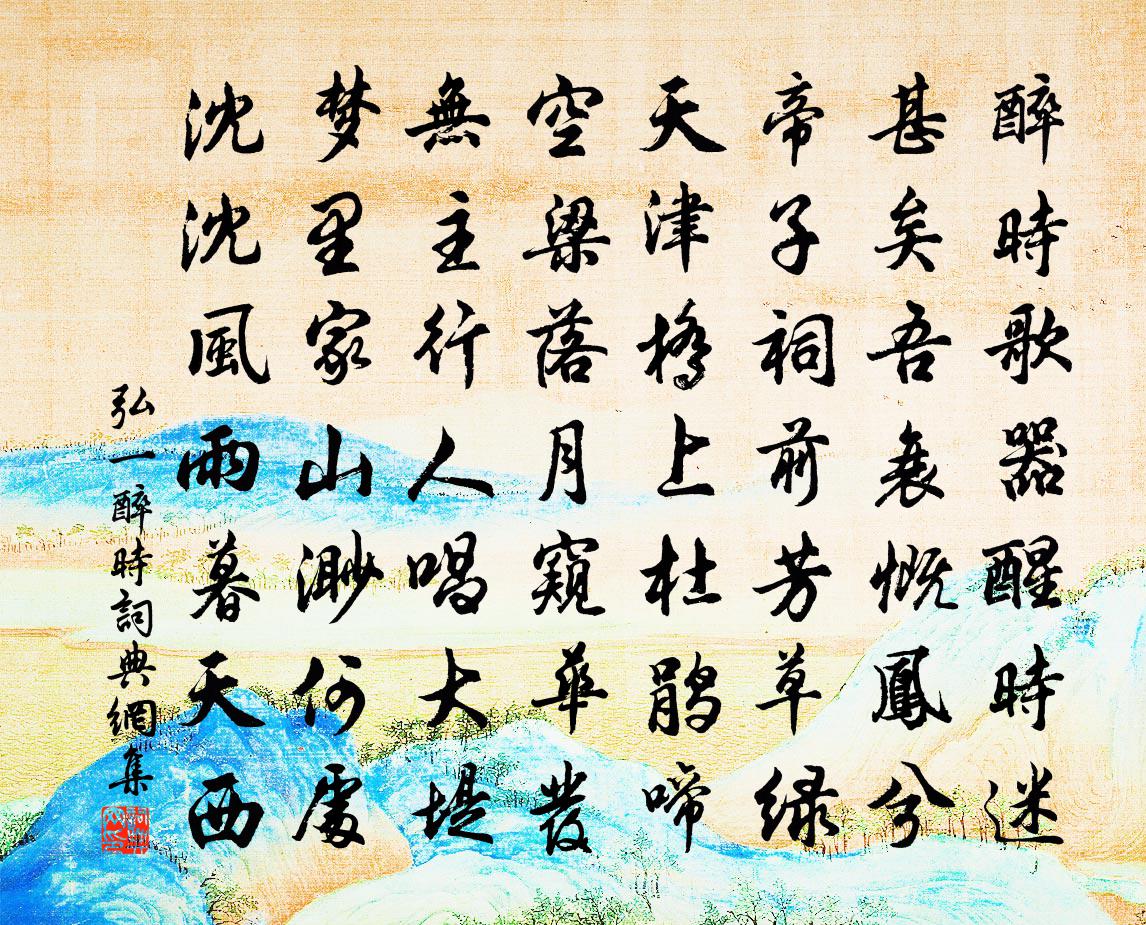 醉時歌器醒時迷
甚矣吾衰慨鳳兮
帝子祠前芳草绿
天津橋上杜鵑啼
空梁落月窺華發
無主行人唱大堤
梦里家山渺何處
沈沈風雨暮天西
弘一醉時詞典網集